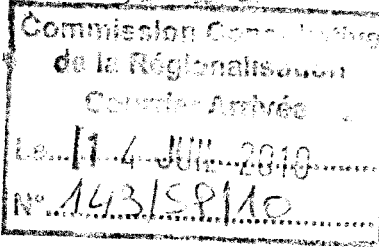 Commission Consultative
de la Régionalisation
Courrier Arrivée
Le 14 JUIL 2010
N° 143/SP/10